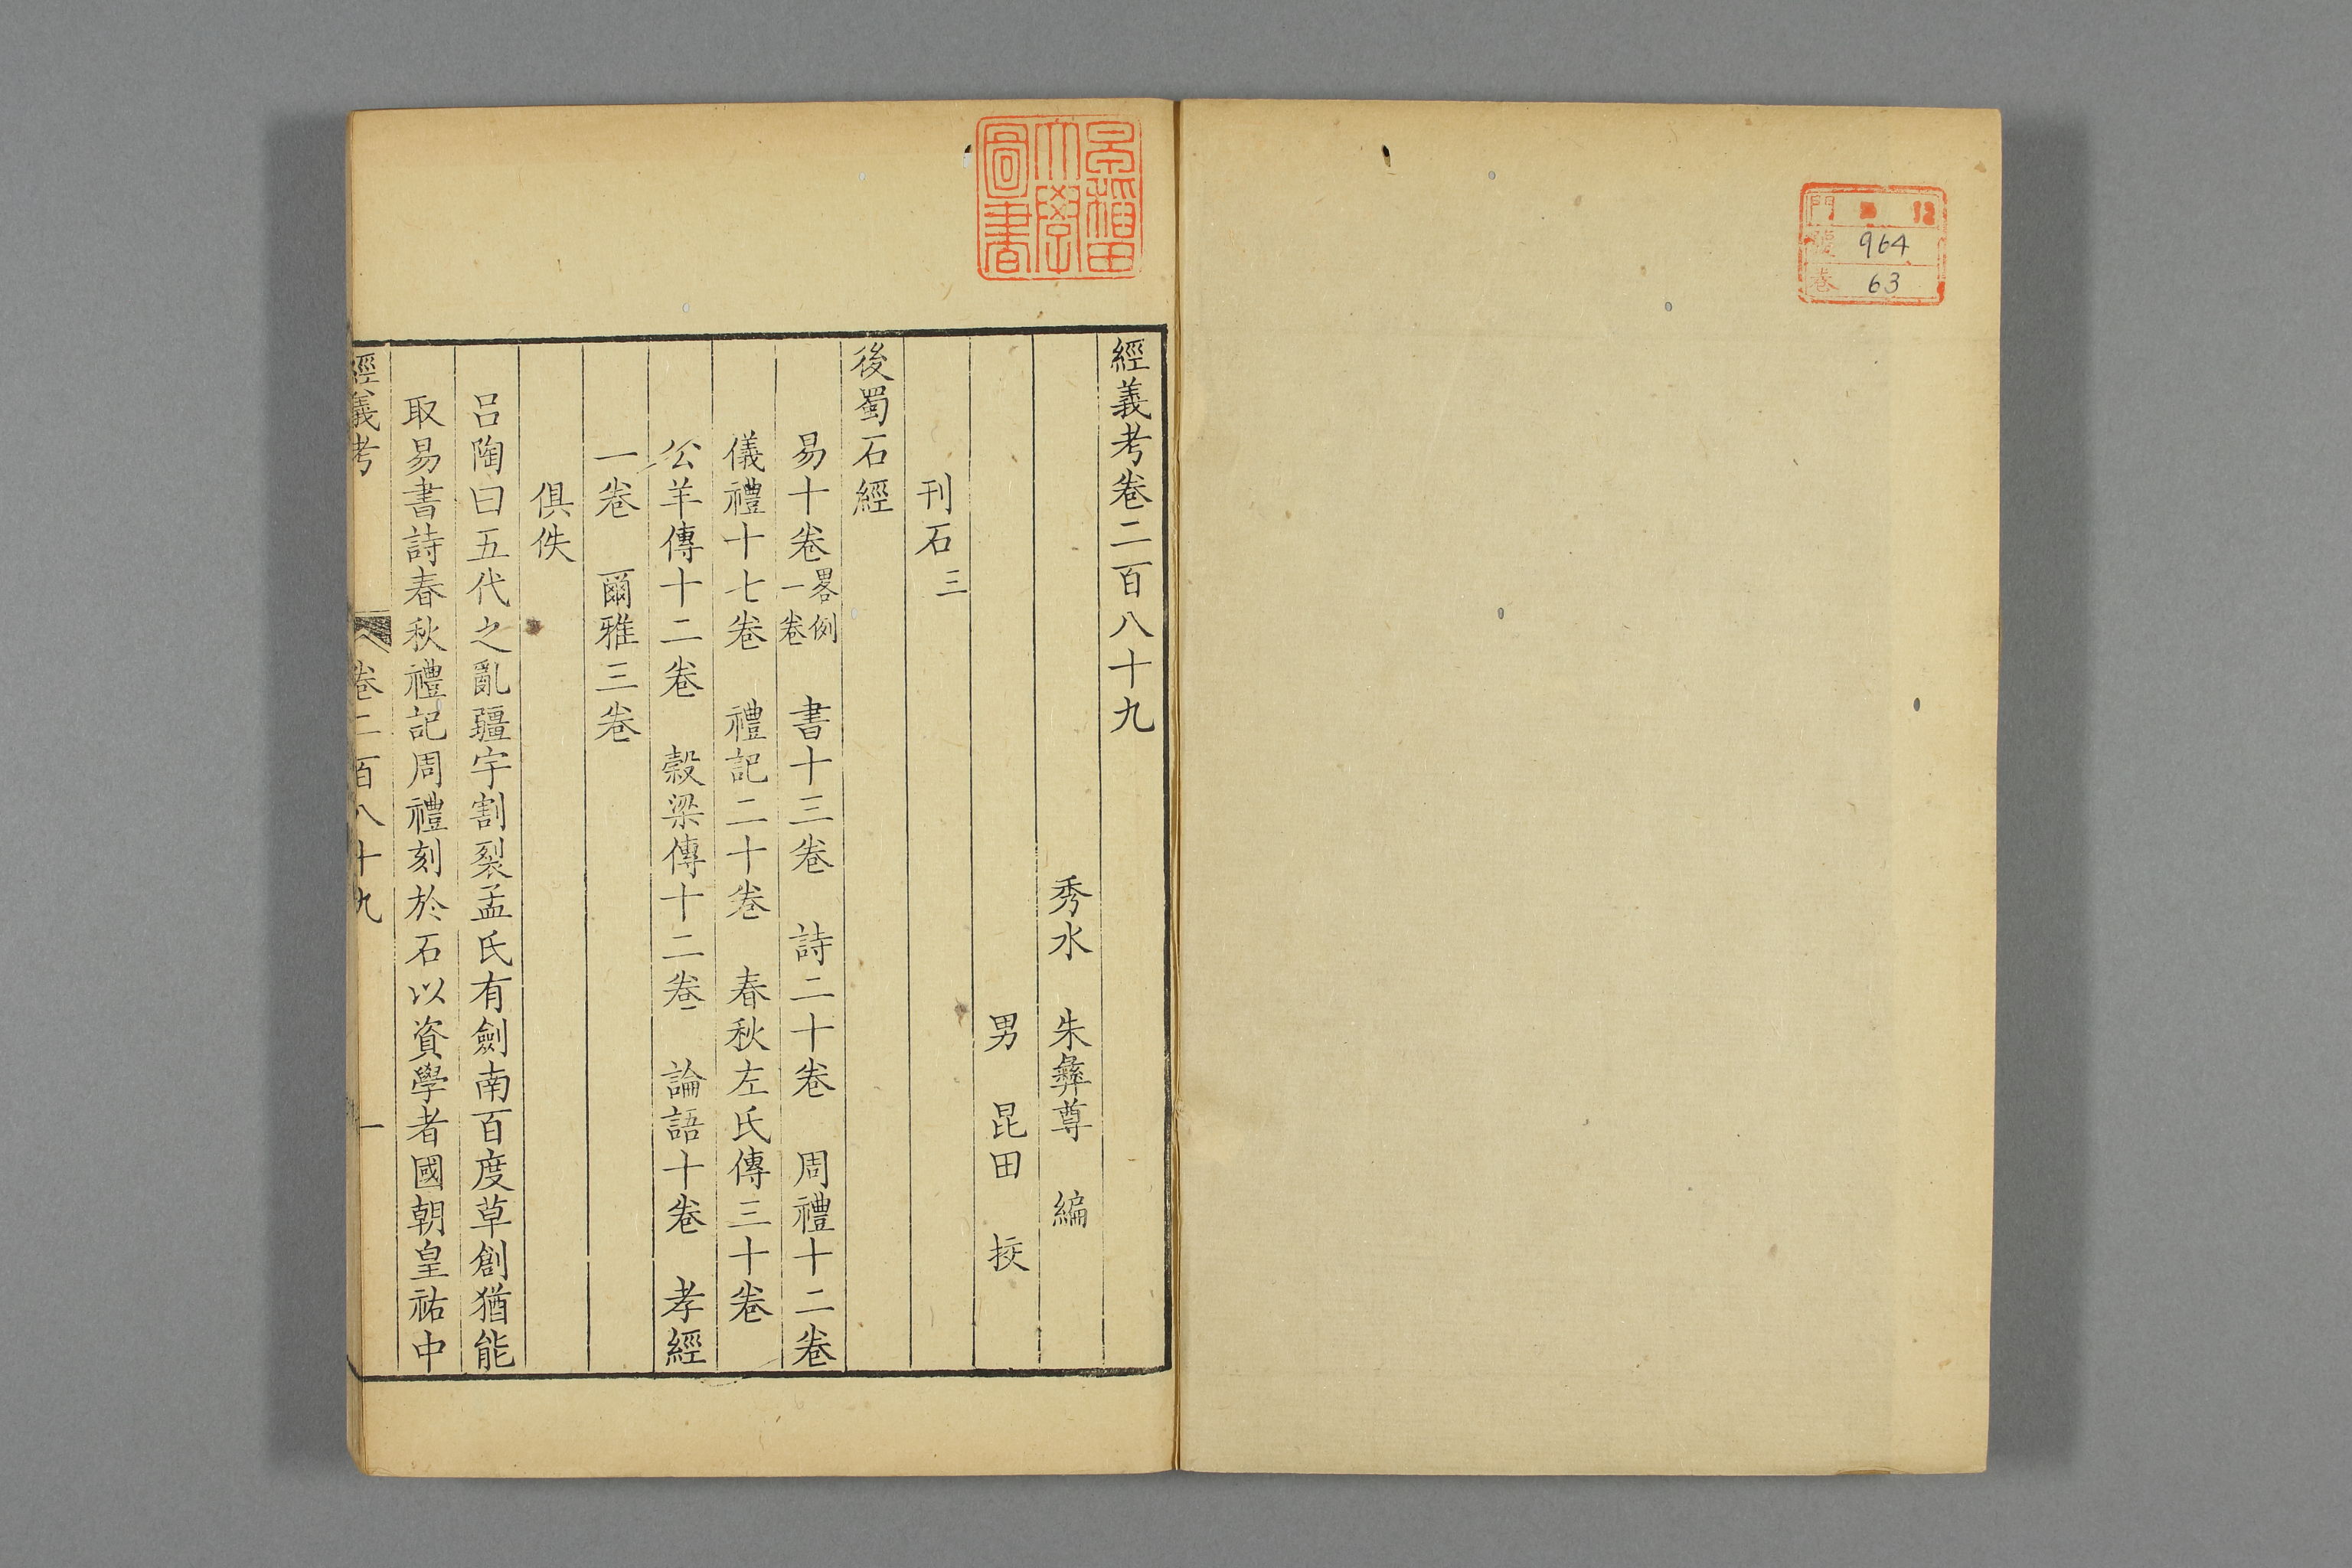 門 12
號 964
巷 63
早稻田
大學
圖書
經義考卷二百八十九
秀水 朱彝尊 編
男 昆田 挍
刊石三
後蜀石經
易十卷畧例一卷 書十三卷 詩二十卷 周禮十二卷
儀禮十七卷 禮記二十卷 春秋左氏傳三十卷
公羊傳十二卷 穀梁傳十二卷 論語十卷 孝經
一卷 爾雅三卷
俱佚
呂陶曰五代之亂疆宇割裂孟氏有劍南百度草創猶能
取易書詩春秋禮記周禮刻於石以資學者國朝皇祐中
經義考 卷二百八十九 一